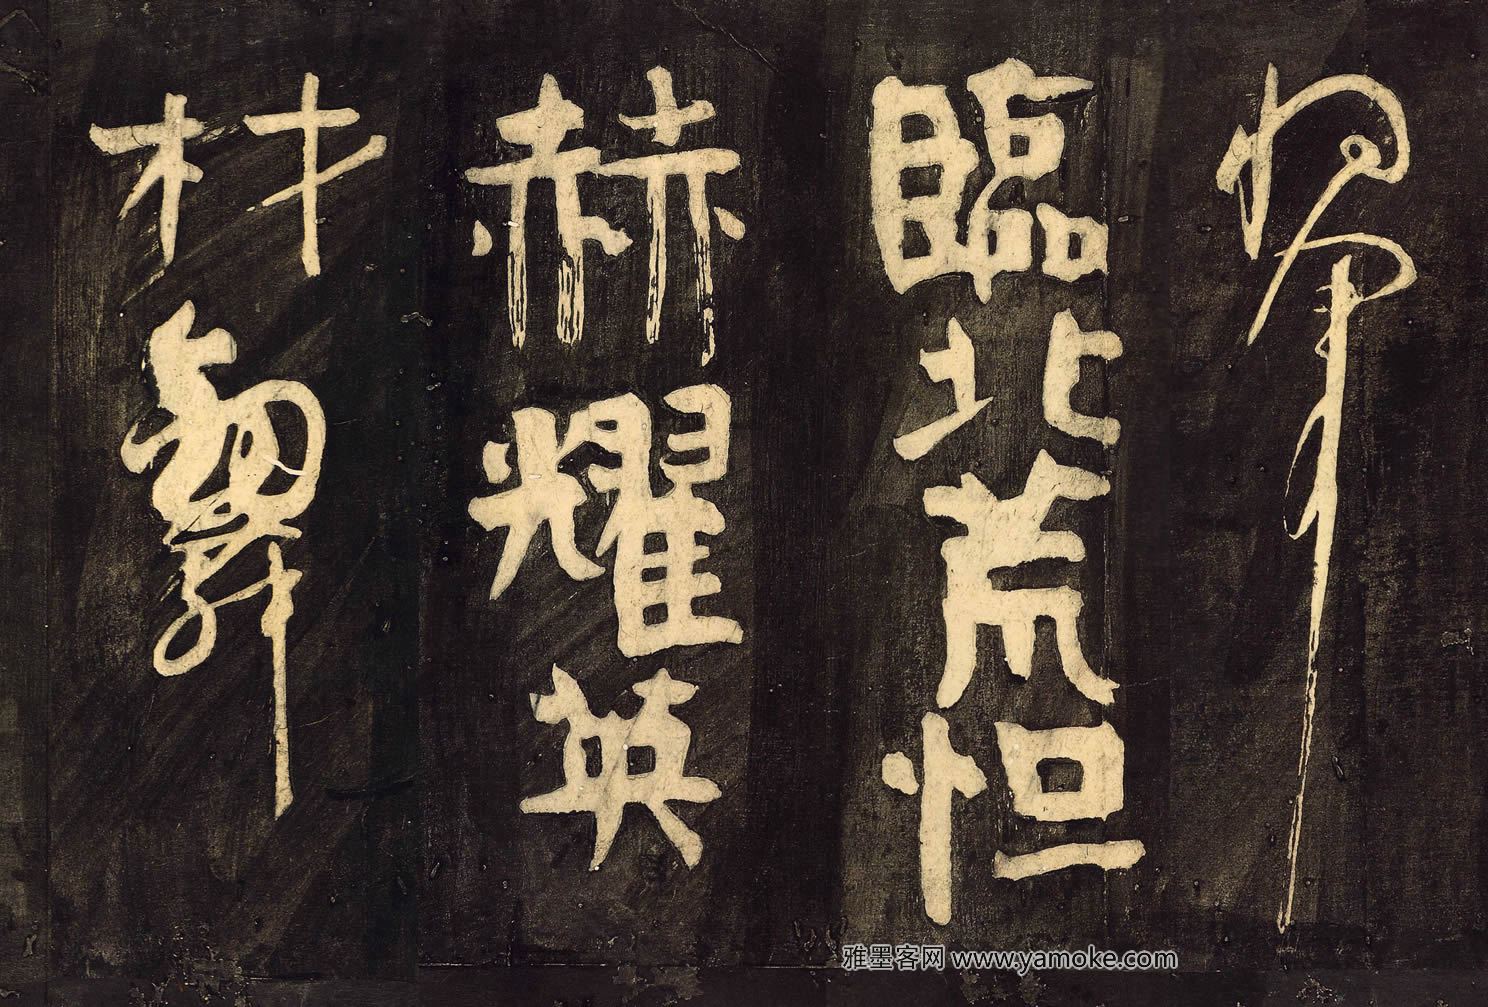 將軍
臨北荒烜
赫耀英
材舞
雅墨客网 www.yamoke.com